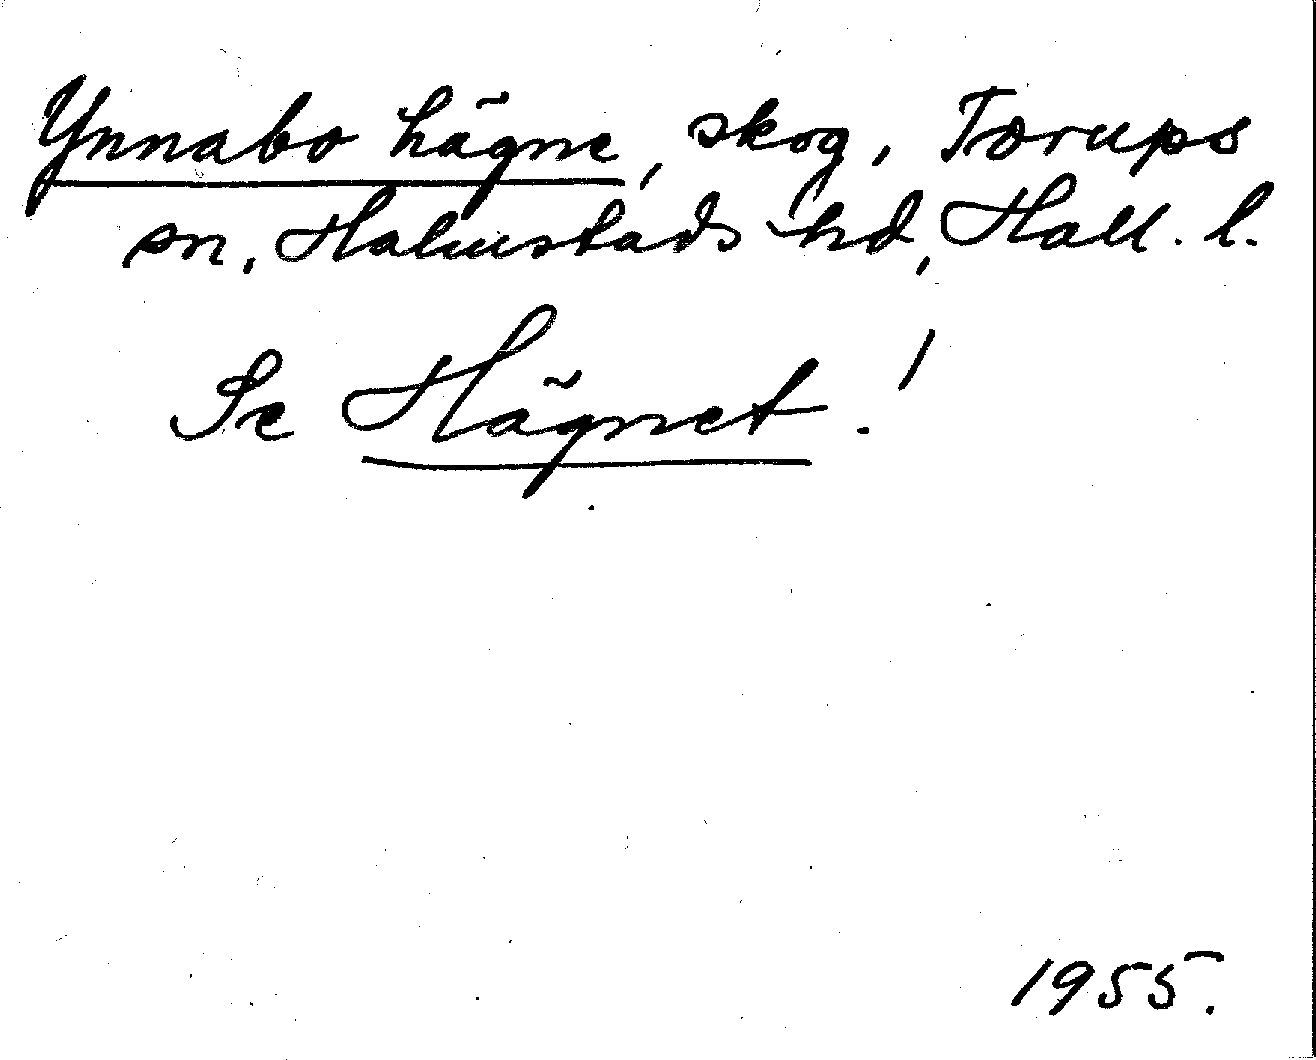 Ynnabo hägne, skog, Torups
sn, Halmstads hd, Hall. l.
Se Hägnet!
1955.